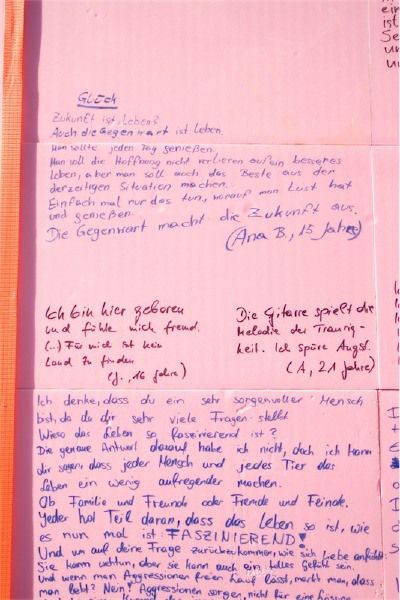 Glück
Zukunft ist Leben?
Auch die Gegenwart ist Leben
Man sollte jeden Tag genießen.
Man soll die Hoffnung nicht verlieren auf ein besseres
Leben, aber man soll auch das Beste aus der
derzeitigen Situation machen.
Einfach mal nur das tun, worauf man Lust hat
und genießen.
Die Gegenwart macht die Zukunft aus.
(Ana B., 15 Jahre)
Ich bin hier geboren
und fühle mich fremd.
(...) Für mich ist kein
Land zu finden
(J., 16 Jahre)
Die Gitarre spielt die
Melodie der Traurig-
keit. Ich spüre Angst.
(A, 21 Jahre)
Ich denke, dass du ein sehr sorgenvoller Mensch
bist, da du dir sehr viele Fragen stellst
Wieso das Leben so faszinierend ist?
Die genaue Antwort darauf habe ich nicht, doch ich kann
dir sagen, dass jeder Mensch und jedes Tier das
Leben ein wenig aufregender machen.
Ob Familie und Freunde oder Fremde und Feinde.
Jeder hat Teil daran, dass das Leben so ist, wie
es nun mal ist: FASZINIEREND!
Und um auf deine Frage zurückzukommen, wie sich Liebe anfühlt:
Sie kann wehtun, aber sie kann auch ein tolles Gefühl sein.
Und wenn man Aggressionen freien Lauf lässt, merkt man, dass
man lebt? Nein! Aggressionen sorgen, nicht für eine Lösung